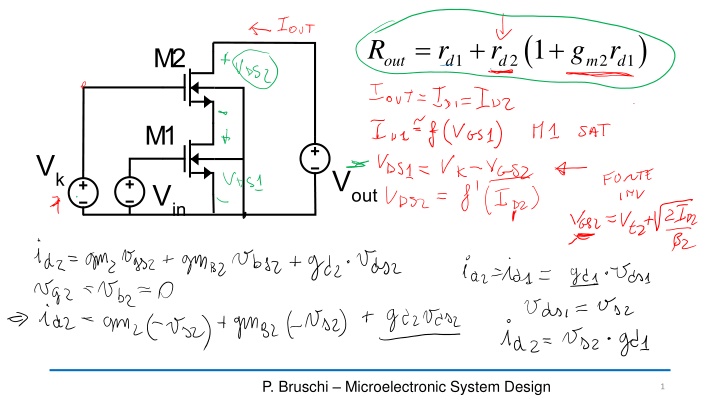 ← I_OUT
M2
+ V_DS2 -
R_out = r_d1 + r_d2 (1 + g_m2 r_d1)
I_OUT = I_D1 = I_D2
M1
+ V_DS1 -
I_D1 ≅ f(V_GS1) M1 SAT
V_k
V_in
V_out
V_DS1 = V_k - V_GS2 ←
V_DS2 = f'(I_D2)
FONTE
INV
V_GS2 = V_t2 + √(2I_D2/β_2)
i_d2 = gm_2 v_gs2 + gm_B2 v_bs2 + g_d2 · v_ds2
v_g2 = v_b2 = 0
⇒ i_d2 = gm_2 (-v_s2) + gm_B2 (-v_s2) + g_d2 v_ds2
i_d2 = i_d1 = g_d1 · v_ds1
v_ds1 = v_s2
i_d2 = v_s2 · g_d1
P. Bruschi – Microelectronic System Design
1